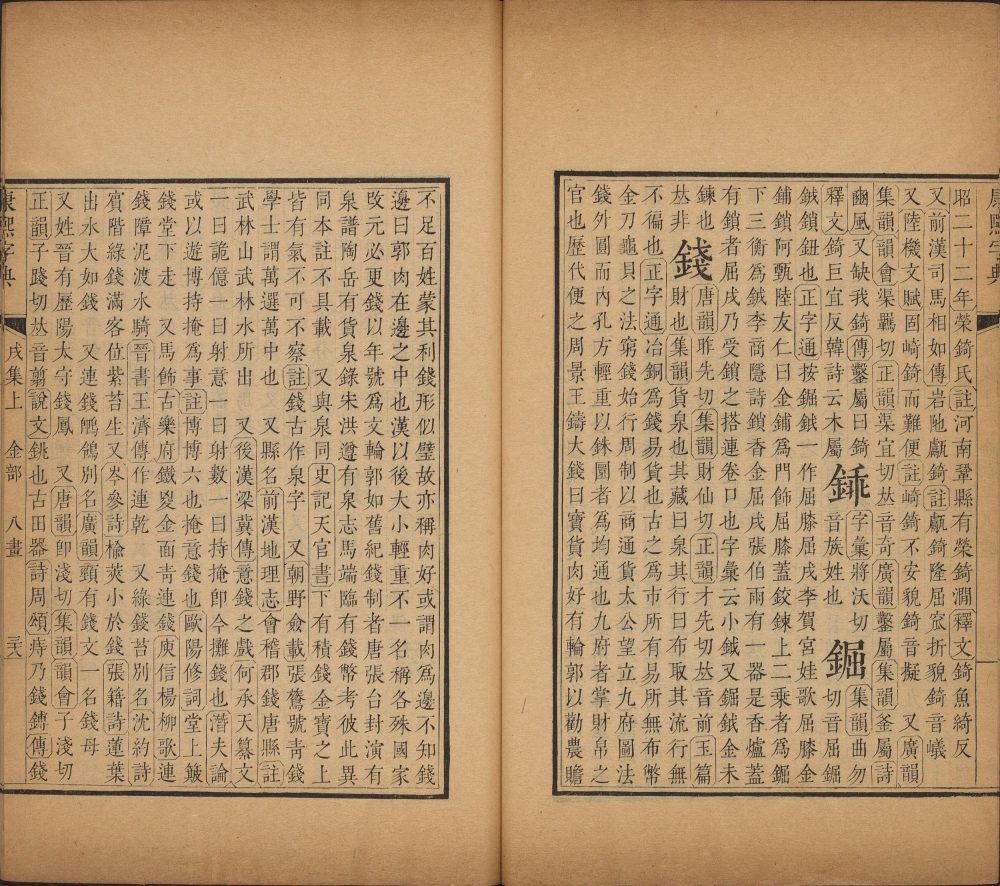 昭二十二年榮錡氏註河南鞏縣有榮錡澗釋文錡魚綺反
又前漢司馬相如傳岩阤甗錡註甗錡隆屈窊折貌錡音蟻
又陸機文賦固崎錡而難便註崎錡不安貌錡音擬 又廣韻
集韻韻會渠羈切正韻渠宜切𠀤音奇廣韻鑿屬集韻釜屬詩
豳風又缺我錡傳鑿屬曰錡 錘 字彙將沃切 鋸 集韻曲勿
釋文錡巨宜反韓詩云木屬 音族姓也 切音屈鋸
鉞鎖鈕也正字通按鋸鉞一作屈膝屈戌李賀宮娃歌屈膝金
鋪鎖阿甄陸友仁曰金鋪爲門飾屈膝蓋鉸鍊上二乘者爲鋸
下三衡爲鉞李商隱詩鎖香金屈戌張伯雨有一器是香爐蓋
有鎖者屈戌乃受鎖之搭連卷口也字彙云小鉞又鋸鉞金未
鍊也 錢 唐韻昨先切集韻財仙切正韻才先切𠀤音前玉篇
𠀤非 財也集韻貨泉也其藏曰泉其行曰布取其流行無
不徧也正字通冶銅爲錢易貨也古之爲市所有易所無布幣
金刀龜貝之法窮錢始行周制以商通貨太公望立九府圜法
錢外圓而內孔方輕重以銖圜者爲均通也九府者掌財帛之
官也歷代便之周景王鑄大錢曰寶貨肉好有輪郭以勸農贍
不足百姓蒙其利錢形似璧故亦稱肉好或謂肉爲邊不知錢
邊曰郭肉在邊之中也漢以後大小輕重不一名稱各殊國家
攺元必更錢以年號爲文輪郭如舊紀錢制者唐張台封演有
泉譜陶岳有貨泉錄宋洪遵有泉志馬端臨有錢幣考彼此異
同本註不具載 又與泉同史記天官書下有積錢金寶之上
皆有氣不可不察註錢古作泉字 又朝野僉載張鷟號靑錢
學士謂萬選萬中也 又縣名前漢地理志會稽郡錢唐縣註
武林山武林水所出 又後漢梁冀傳意錢之戲何承天纂文
一曰詭億一曰射意一曰射數一曰持掩卽今攤錢也潛夫論
或以遊博持掩爲事註博博六也掩意錢也歐陽修詞堂上簸
錢堂下走 又馬飾古樂府鐵鍐金面靑連錢庾信楊柳歌連
錢障泥渡水騎晉書王濟傳作連乾 又綠錢苔別名沈約詩
賓階綠錢滿客位紫苔生又岑參詩楡莢小於錢張籍詩蓮葉
出水大如錢 又連錢鶺鴒別名廣韻頸有錢文一名錢母
又姓晉有歷陽太守錢鳳 又唐韻卽淺切集韻韻會子淺切
正韻子踐切𠀤音翦說文銚也古田器詩周頌庤乃錢鎛傳錢
康熙字典 戌集上 金部 八畫 三十八